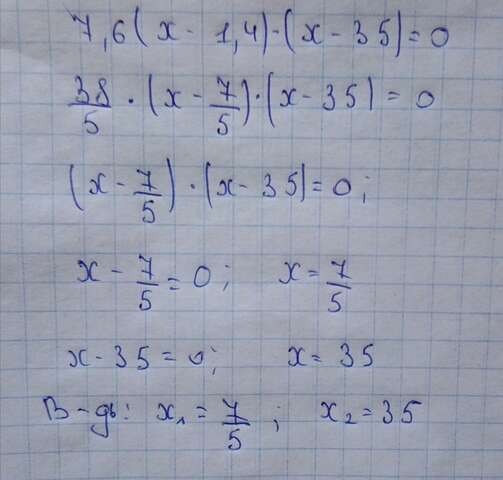 7,6(x - 1,4)·(x - 35) = 0
38/5 · (x - 7/5) · (x - 35) = 0
(x - 7/5) · (x - 35) = 0;
x - 7/5 = 0; x = 7/5
x - 35 = 0; x = 35
В-дь: x₁ = 7/5 ; x₂ = 35